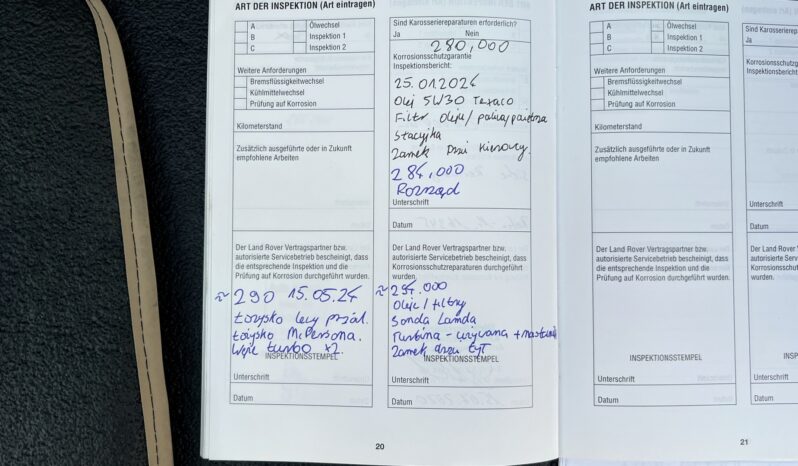 ART DER INSPEKTION (Art eintragen)
A
B
C
Ölwechsel
Inspektion 1
Inspektion 2
Weitere Anforderungen
Bremsflüssigkeitwechsel
Kühlmittelwechsel
Prüfung auf Korrosion
Kilometerstand
Zusätzlich ausgeführte oder in Zukunft
empfohlene Arbeiten
Der Land Rover Vertragspartner bzw.
autorisierte Servicebetrieb bescheinigt, dass
die entsprechende Inspektion und die
Prüfung auf Korrosion durchgeführt wurden.
≈ 290 15.05.24
Łożysko lewy przód.
Łożysko McPersona.
Węże turbo x2.
INSPEKTIONSSTEMPEL
Unterschrift
Datum
Sind Karosseriereparaturen erforderlich?
Ja Nein
280,000
Korrosionsschutzgarantie
Inspektionsbericht:
25.01.2024
Olej 5W30 Texaco
Filtr oleju/paliwa/
Stacyjka
Zamek Drzwi Kierowcy.
284,000
Rozrząd
Unterschrift
Datum
Der Land Rover Vertragspartner bzw.
autorisierte Servicebetrieb bescheinigt, dass
Korrosionsschutzreparaturen durchgeführt
wurden.
≈ 294.000
Oleje/filtry
Sonda Lamda
Turbina - używana +
Zamek drzwi tył
INSPEKTIONSSTEMPEL
Unterschrift
Datum
20
ART DER INSPEKTION (Art eintragen)
A
B
C
Ölwechsel
Inspektion 1
Inspektion 2
Weitere Anforderungen
Bremsflüssigkeitwechsel
Kühlmittelwechsel
Prüfung auf Korrosion
Kilometerstand
Zusätzlich ausgeführte oder in Zukunft
empfohlene Arbeiten
Der Land Rover Vertragspartner bzw.
autorisierte Servicebetrieb bescheinigt, dass
die entsprechende Inspektion und die
Prüfung auf Korrosion durchgeführt wurden.
INSPEKTIONSSTEMPEL
Unterschrift
Datum
Sind Karosseriere
Ja
Korrosionsschutzg
Inspektionsbericht:
Unterschrift
Datum
Der Land Rover Ve
autorisierte Service
Korrosionsschutzre
wurden.
INSP
Unterschrift
Datum
21